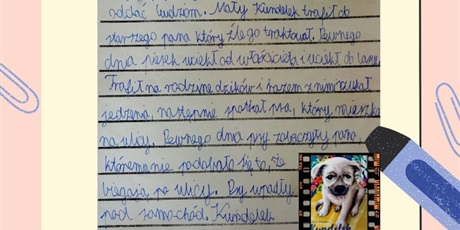 oddać ludziom. Mały Kundelek trafił do
starszego pana który źle go traktował. Pewnego
dnia piesek uciekł od właściciela i uciekł do lasu.
Trafił na rodzinę dzików i razem z nimi szukał
jedzenia, następnie spotkał psa, który mieszka
na ulicy. Pewnego dnia psy zobaczyły pana,
któremu nie podobało się to, że
biegają po ulicy. Psy wpadły
pod samochód. Kundelek
Kundelek